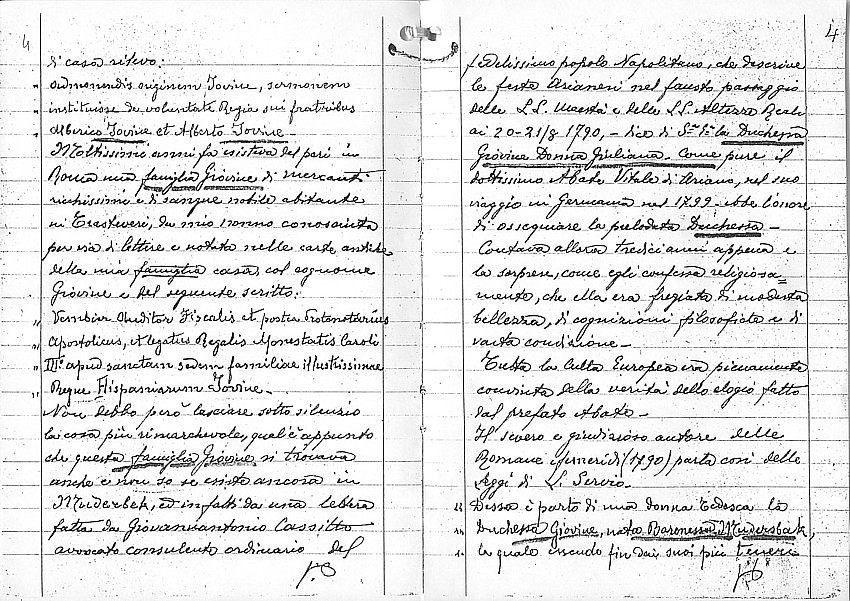 4
di casa rilevo:
" admonendis originem Jovine, sermonem
" instituisse de voluntate Regia sui fratribus
" Alberico Jovine et Alberto Jovine_
Moltissimi anni fa esisteva del pari in
Roma una famiglia Giovine di mercanti
ricchissimi e di sangue nobile abitante
ni Trasteveri, da mio nonno conosciuta
per via di lettere e notata nelle carte antiche
della mia famiglia casa, col cognome
Giovine e del seguente scritto:
" Auditor Fiscalis et postea Protonotarius
" apostolicus, et legatus Regalis Maestatis Caroli
" III° apud sanctam sedem familiae illustrissimae
" Regue Hispaniarum Jovine_
Non debbo però lasciare sotto silenzio
la cosa più rimarchevole, qual'è appunto
che questa famiglia Giovine si trovava
anche e non so se esiste ancora in
Muderbek, ed infatti da una lettera
fatta da Giovannantonio Cassitto
avvocato consulente ordinario del
4
fedelissimo popolo Napolitano, che descrive
le feste Arianesi nel fausto passaggio
delle LL. Maestà e delle LL. Altezze Reali
ai 20-21/8 1790,- dice di la Duchessa
Giovine Donna Giuliana_ Come pure il
dottissimo Abate Vitale di Ariano, nel suo
viaggio in Germania nel 1799- ebbe l'onore
di ossequiare la prelodata Duchessa_
Contava allora tredici anni appena e
la sorprese, come egli confessa religiosa=
mente, che ella era fregiata di modesta
bellezza, di cognizioni filosofiche e di
vasta condizione_
Tutta la culta Europea era pienamente
convinta della verità dello elogio fatto
dal prefato Abate_
Il severo e giudizioso autore delle
Romane efemeridi (1790) parla così delle
Leggi di Li Servio.
" Dessa è parto di una donna tedesca la
" Duchessa Giovine, nata Baronessa Mudersbak,
" la quale essendo fin dai suoi più teneri